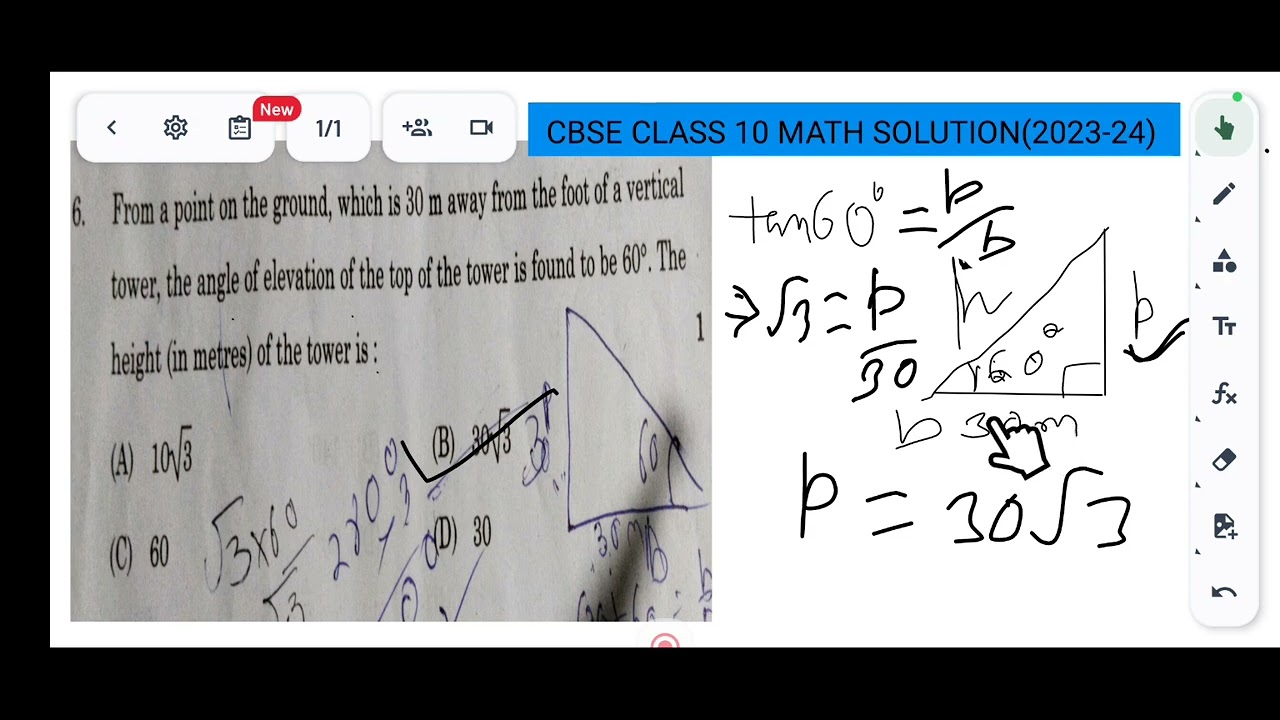 New
1/1
CBSE CLASS 10 MATH SOLUTION(2023-24)
6. From a point on the ground, which is 30 m away from the foot of a vertical
tower, the angle of elevation of the top of the tower is found to be 60°. The
height (in metres) of the tower is :
1
(A) 10√3
(B) 30√3
(C) 60
(D) 30
√3×60
√3
60
30 m
tan60° = p/b
⇒ √3 = p/30
h
p
60
b 30m
p = 30√3
Tт
fx